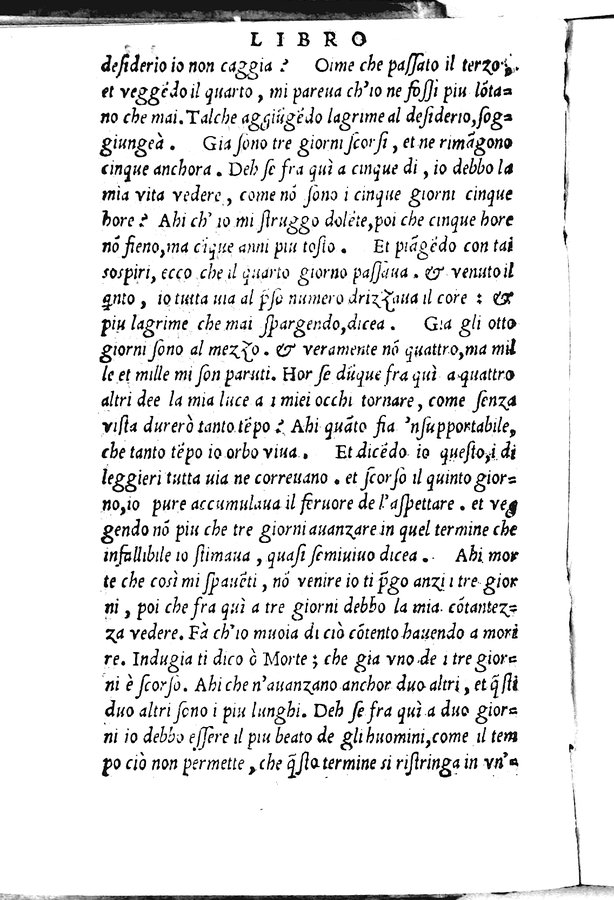 LIBRO
deſiderio io non caggia ? Oime che paſſato il terzo,
et veggēdo il quarto, mi pareua ch'io ne foſſi piu lōta=
no che mai. Talche aggiūgēdo lagrime al deſiderio, ſog=
giungea. Gia ſono tre giorni ſcorſi, et ne rimāgono
cinque anchora. Deh ſe fra quì a cinque di, io debbo la
mia vita vedere, come nō ſono i cinque giorni cinque
hore ? Ahi ch'io mi ſtruggo dolēte, poi che cinque hore
nō fieno, ma cīque anni piu toſto. Et piāgēdo con tai
sospiri, ecco che il quarto giorno paſſaua. & venuto il
qnto, io tutta uia al pſo numero drizzaua il core : &
piu lagrime che mai ſpargendo, dicea. Gia gli otto
giorni ſono al mezzo. & veramente nō quattro, ma mil
le et mille mi ſon paruti. Hor ſe dūque fra quì a quattro
altri dee la mia luce a i miei occhi tornare, come ſenza
viſta durerò tanto tēpo ? Ahi quāto fia 'nſupportabile,
che tanto tēpo io orbo viua. Et dicēdo io queſto, i di
leggieri tutta uia ne correuano. et ſcorſo il quinto gior=
no, io pure accumulaua il feruore de l'aſpettare. et veg
gendo nō piu che tre giorni auanzare in quel termine che
infallibile io ſtimaua, quaſi ſemiuiuo dicea. Ahi mor
te che così mi ſpauēti, nō venire io ti p̄go anzi i tre gior
ni, poi che fra quì a tre giorni debbo la mia cōtantez=
za vedere. Fà ch'io muoia di ciò cōtento hauendo a mori
re. Indugia ti dico ò Morte ; che gia vno de i tre gior=
ni è ſcorſo. Ahi che n'auanzano anchor duo altri, et q̄ſti
duo altri ſono i piu lunghi. Deh ſe fra quì a duo gior=
ni io debbo eſſere il piu beato de gli huomini, come il tem
po ciò non permette, che q̄ſto termine si riſtringa in vn'=